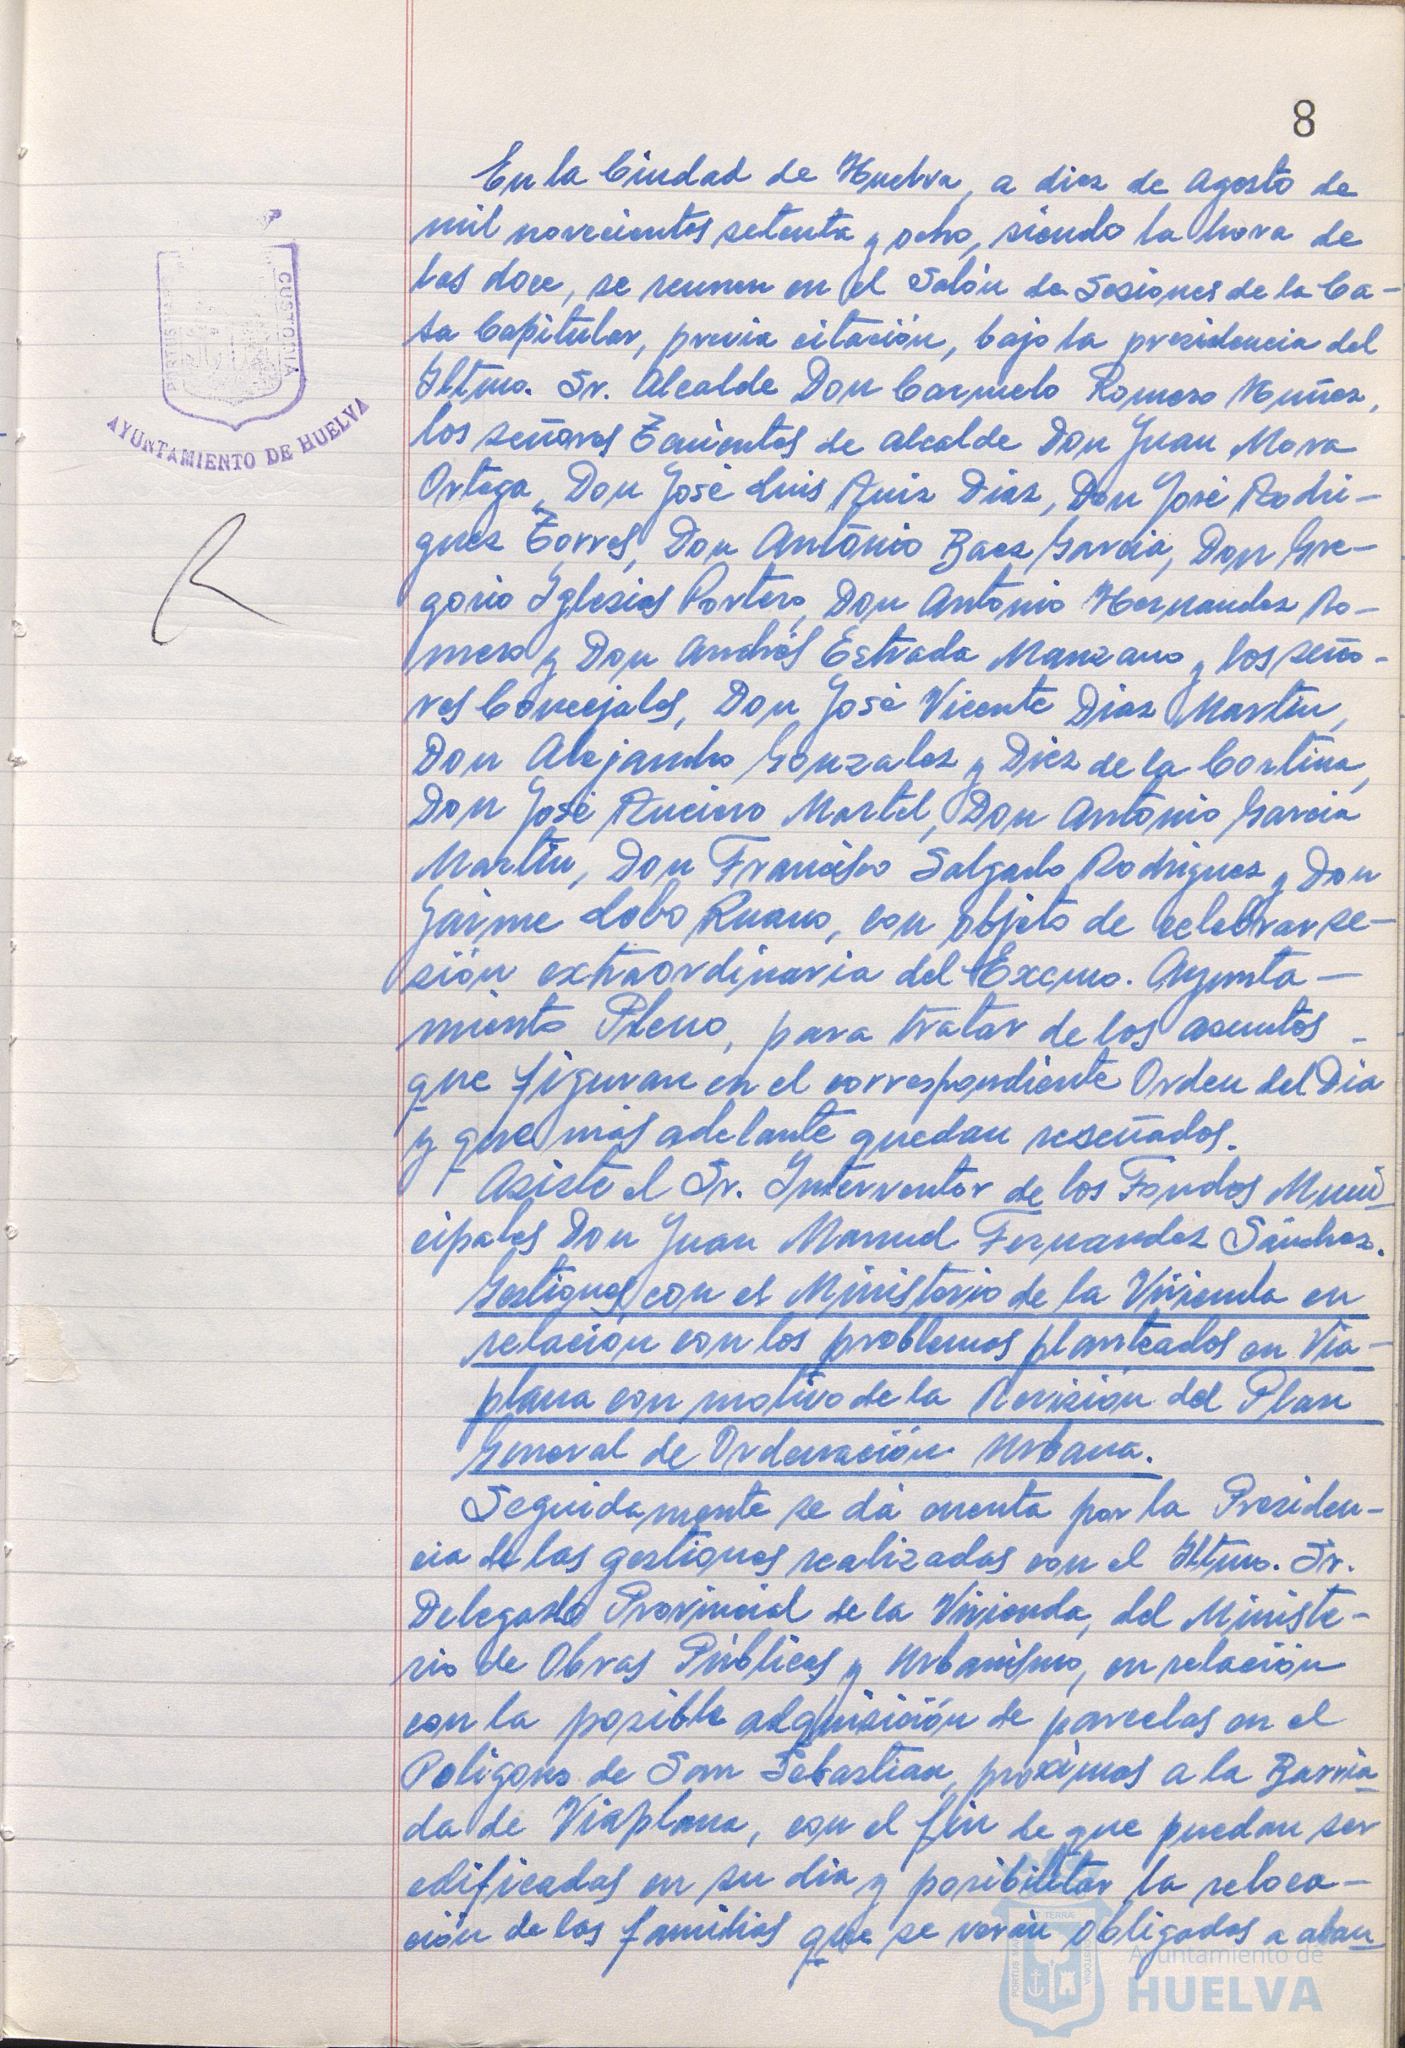 8
En la Ciudad de Huelva, a diez de Agosto de
mil novecientos setenta y ocho, siendo la hora de
las doce, se reunen en el Salón de Sesiones de la Ca-
sa Capitular, previa citación, bajo la presidencia del
Iltmo. Sr. Alcalde Don Carmelo Romero Muñoz,
los señores Tenientes de Alcalde Don Juan Mora
Ortega, Don José Luis Ruiz Díaz, Don José Rodri-
guez Torres, Don Antonio Baez García, Don Gre-
gorio Iglesias Portero, Don Antonio Hernandez Ro-
mero y Don Andrés Estrada Manzano y los seño-
res Concejales, Don José Vicente Diaz Martín,
Don Alejandro Gonzalez y Diez de la Cortina,
Don José Ruciero Martel, Don Antonio García
Martín, Don Francisco Salgado Rodriguez y Don
Jaime Lobo Ruano, con objeto de celebrar se-
sión extraordinaria del Excmo. Ayunta-
miento Pleno, para tratar de los asuntos
que figuran en el correspondiente Orden del Dia
y que más adelante quedan reseñados.
Asiste el Sr. Interventor de los Fondos Muni
cipales Don Juan Manuel Fernandez Sánchez.
Gestiones con el Ministerio de la Vivienda en
relación con los problemas planteados en Via-
plana con motivo de la Revisión del Plan
General de Ordenación Urbana.
Seguidamente se dá cuenta por la Presiden-
cia de las gestiones realizadas con el Iltmo. Sr.
Delegado Provincial de la Vivienda, del Ministe-
rio de Obras Públicas y Urbanismo, en relación
con la posible adquisición de parcelas en el
Poligono de San Sebastian, próximas a la Barria
da de Viaplana, con el fin de que puedan ser
edificadas en su dia y posibilitar la reloca-
ción de las familias que se verán obligadas a aban
PORTUS MARIS
CUSTODIA
AYUNTAMIENTO DE HUELVA
Ayuntamiento de
HUELVA